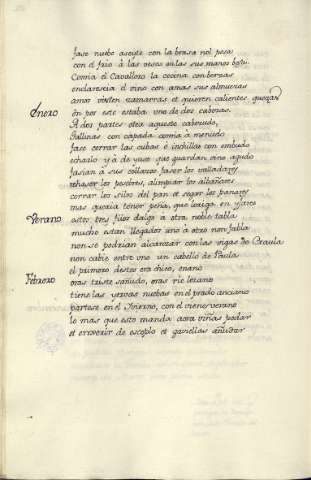 fase nuebo aseyte con la brasa nol pesa
con el frio à las veses en las sus manos besa.
Comia el Cavallero la cocina con berzas
enclarescia el vino con amas sus almuezas
amor visten zamarras et quieren calientes quezas
Enero
en pos este estaba uno de dos cabezas.
A dos partes otea aqueste cabezudo,
Gallinas con capada comia à menudo
fase cerrar las cubas è inchillas con embudo
echarlo yà de yuso que guardan vino agudo
fasian a sus collazos faser los valladares
rehaser los pesebres, alimpiar los albañares
cerrar los silos del pan et segar los panares
mas queria tener peña, que loriga en yjares
Verano
estos tres fijos dalgo à otra noble tabla
mucho estan llegados uno à otro non fabla
non se podrian alcanzar con las vigas de
non cabie entre uno un cabello de Paula
Febrero
el primero destos era chico, enano
oras triste sañudo, oras rie lozano
tiene las yerbas nuebas en el prado anciano
partese en el Ynvierno, con el viene verano
lo mas que este manda era viñas podar
et enxerir de escoplo et gavillas